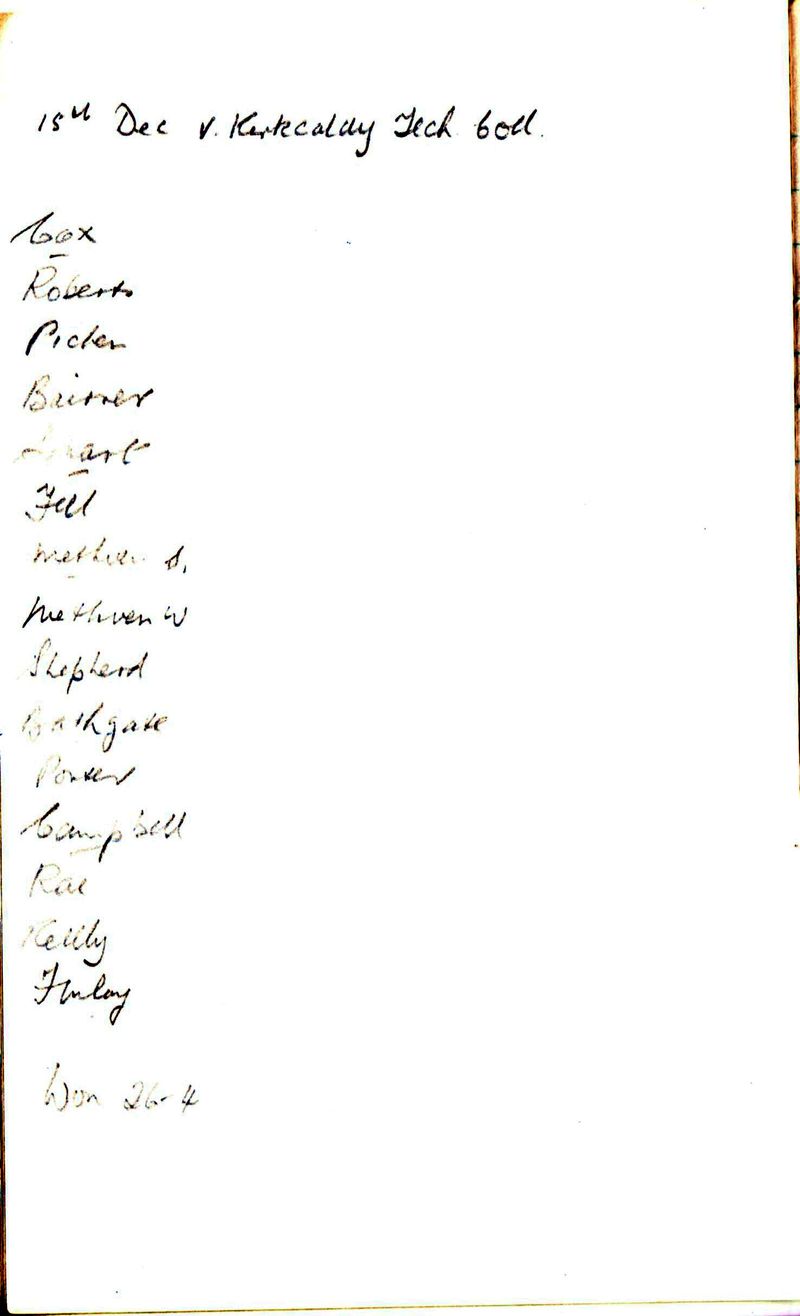 15th Dec v. Kirkcaldy Tech Coll.
Cox
Roberts
Picken
Bairner
Smart
Fell
Methven D.
Methven W
Shepherd
Bathgate
Porter
Campbell
Rae
Kelly
Finlay
Won 26-4